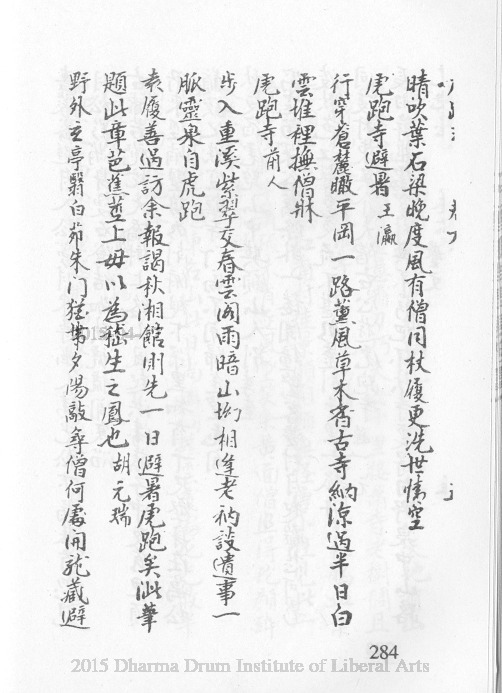 晴吹葉石梁晚度風有僧同杖履更洗世情空
虎跑寺避暑 王瀛
行穿蒼麓瞰平岡一路薰風草木香古寺納涼過半日白
雲堆裡撫僧牀
虎跑寺 前人
步入重溪紫翠交春雲閣雨暗山坳相逢老衲談遺事一
脈靈泉自虎跑
袁履善過訪余報謁秋湘館則先一日避暑虎跑矣泚筆
題此章芭蕉葉上毋以為嵇生之鳳也 胡元瑞
野外玄亭翳白茆朱门猶帶夕陽敲尋僧何處開龍藏避
284
2015 Dharma Drum Institute of Liberal Arts